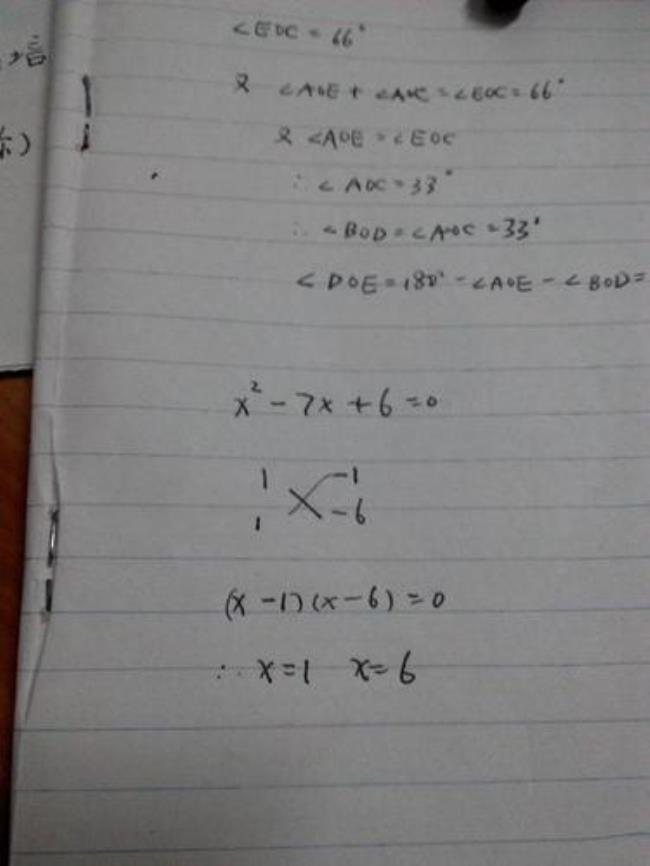 ∠EOC = 66°
又 ∠AOE + ∠AOC = ∠EOC = 66°
又 ∠AOE = ∠EOC
∴ ∠AOC = 33°
∴ ∠BOD = ∠AOC = 33°
∠DOE = 180° - ∠AOE - ∠BOD =
x² - 7x + 6 = 0
1 -1
1 -6
(x - 1)(x - 6) = 0
∴ x = 1 x = 6